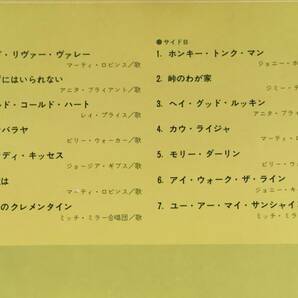 ・リヴァー・ヴァレー
マーティ・ロビンス/歌
ずにはいられない
アニタ・ブライアント/歌
ルド・コールド・ハート
レイ・プライス/歌
バラヤ
ビリー・ウォーカー/歌
ディ・キッセス
ジョージア・ギブス/歌
は
マーティ・ロビンス/歌
のクレメンタイン
ミッチ・ミラー合唱団/歌
●サイドB
1. ホンキー・トンク・マン
ジョニー・ホ
2. 峠のわが家
ジミー・デ
3. ヘイ・グッド・ルッキン
アニタ・ブライ
4. カウ・ライジャ
マーティ・ロ
5. モリー・ダーリン
ビリー・ウォー
6. アイ・ウォーク・ザ・ライン
ジョニー・キ
7. ユー・アー・マイ・サンシャイ
ミッチ・ミラー